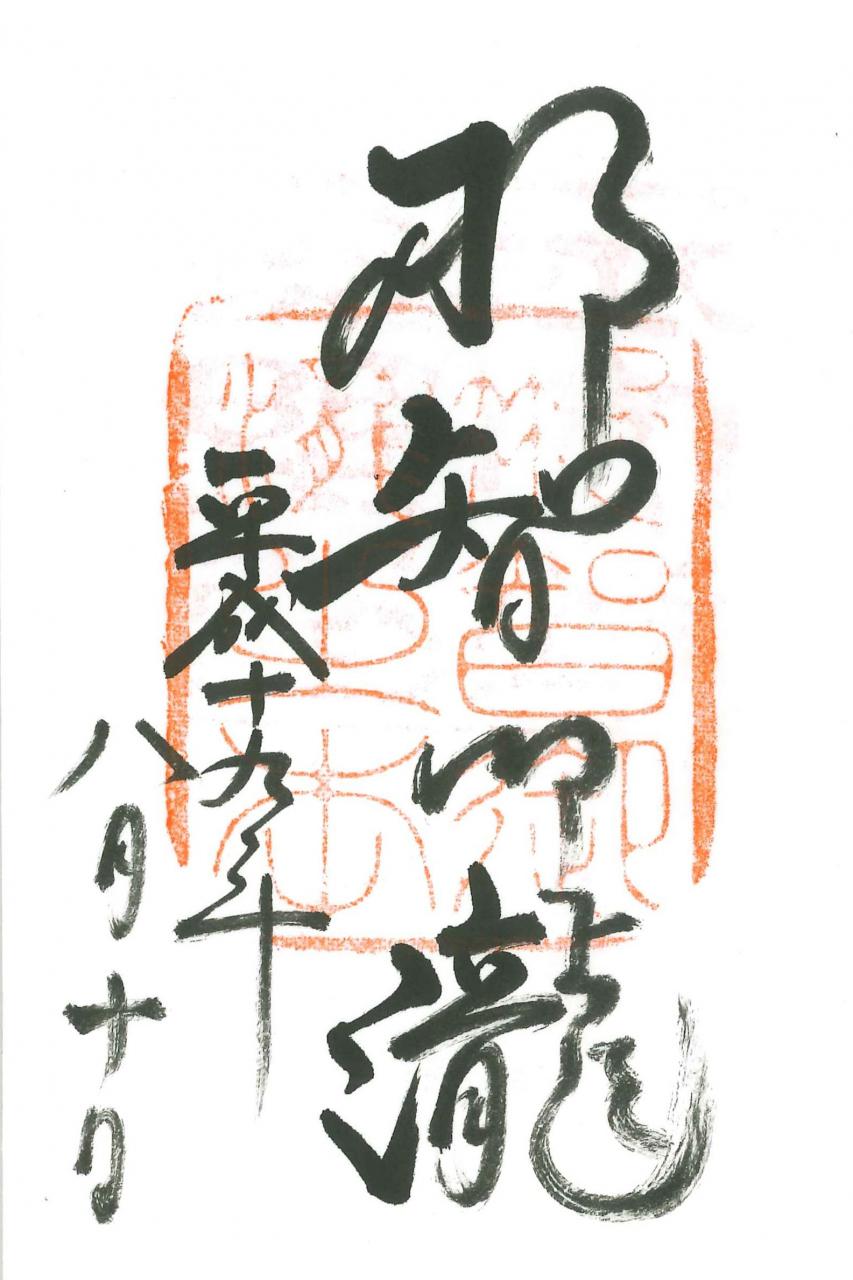 那智御瀧
平成十九年
八月十日